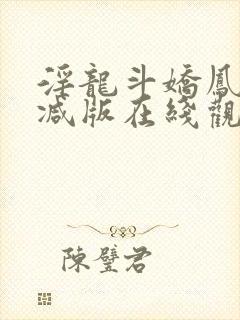 淫龍斗嬌鳳
減版在綫觀
陳璧君